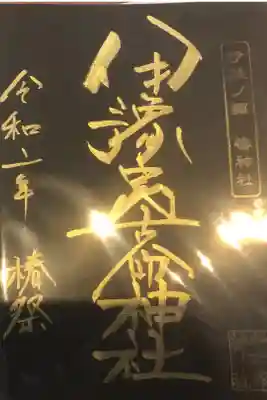 伊豫ノ國 椿神社
伊豫豆比古命神社
令和二年 椿祭